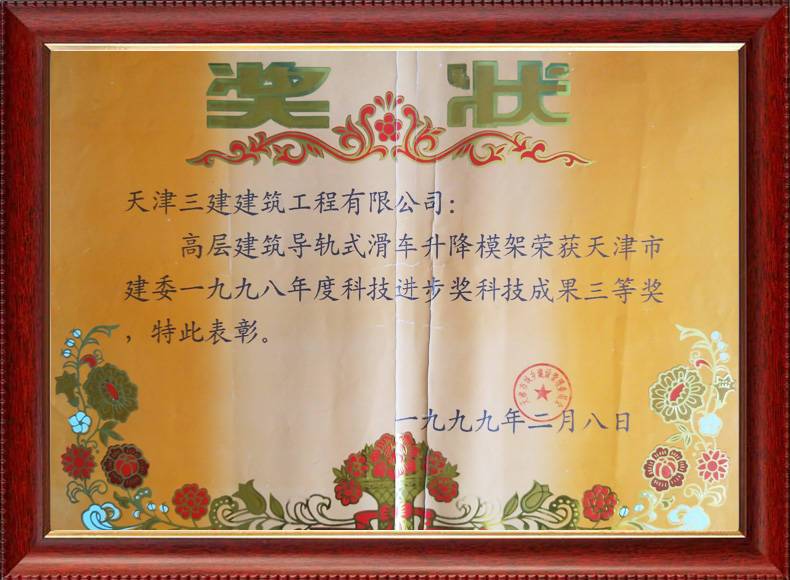 奖状
天津三建建筑工程有限公司：
高层建筑导轨式滑车升降模架荣获天津市
建委一九九八年度科技进步奖科技成果三等奖
，特此表彰。
一九九九年二月八日